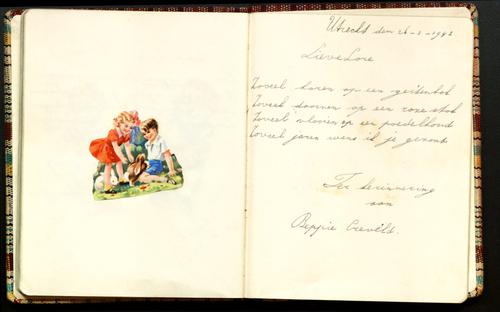 Utrecht den 26-2-1942
Lieve Lore
Zoveel haren op een geitenbok
Zoveel doornen op een roze stok
Zoveel vlooien op een poedelhond
Zoveel jaren wens ik je gezond
Ter herinnering
aan
Beppie Creveld.